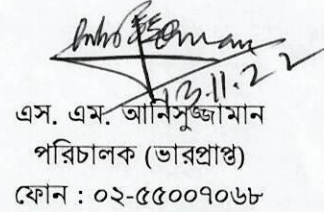 13.11.22
এস. এম. আনিসুজ্জামান
পরিচালক (ভারপ্রাপ্ত)
ফোন : ০২-৫৫০০৭০৬৮